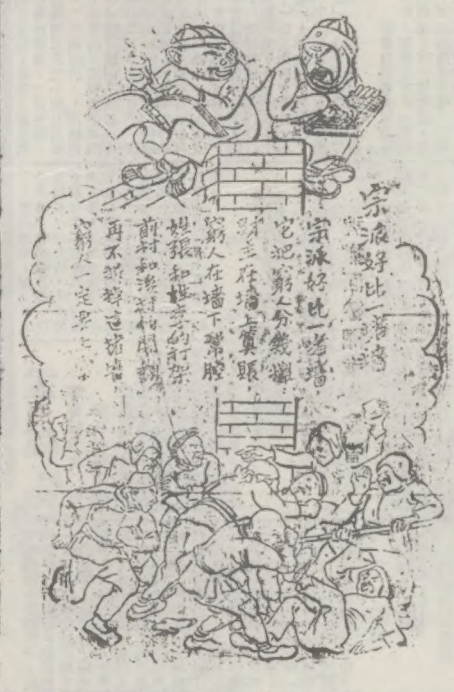 宗派好比一堵墙
宗派好比一堵墙
它把窮人分幾攔
財主在墙上算賬
窮人在墙下帮腔
姓張和姓李的打架
前村和後村相鬧
再不拆掉這堵墙
窮人一定要上